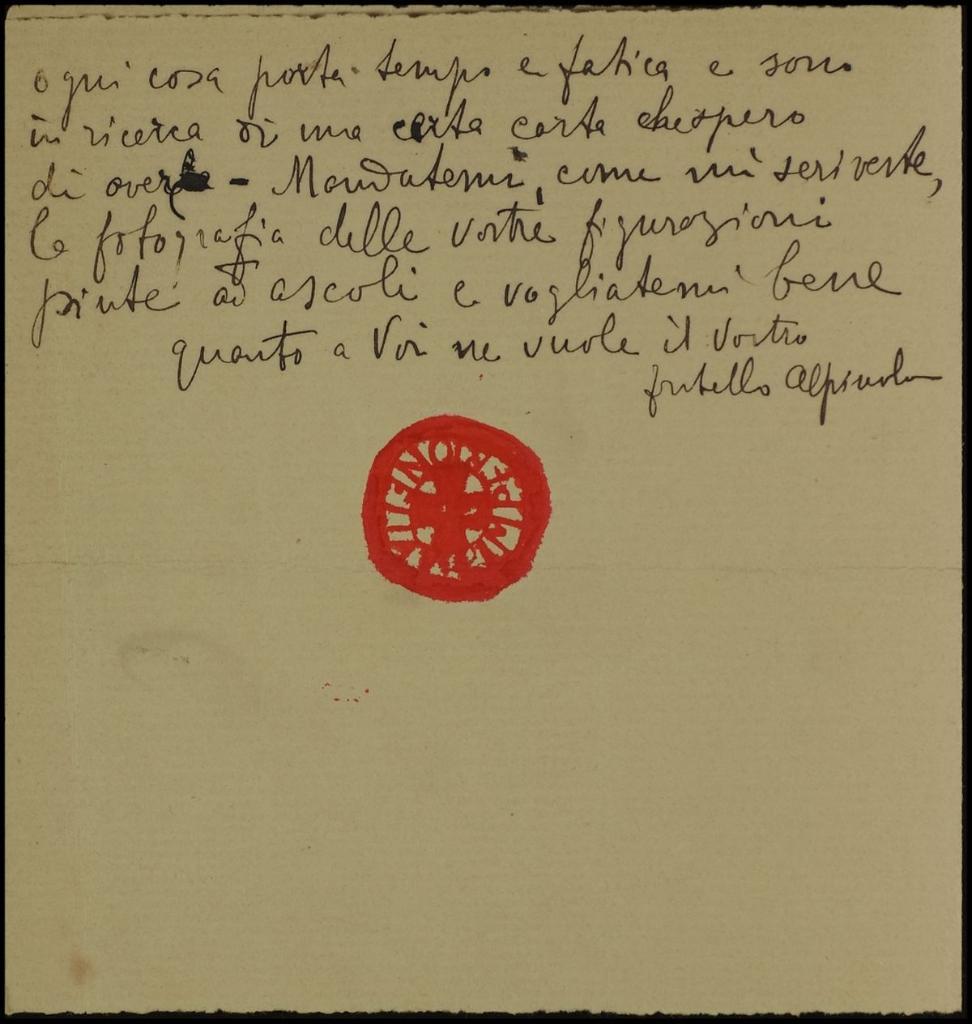 ogni cosa porta tempo e fatica e sono
in ricerca di una certa carta che spero
di avere - Mandatemi, come mi scriveste,
le fotografia delle vostre figurazioni
pinte ad ascoli e vogliatemi bene
quanto a Voi ne vuole il Vostro
fratello Alpinolo